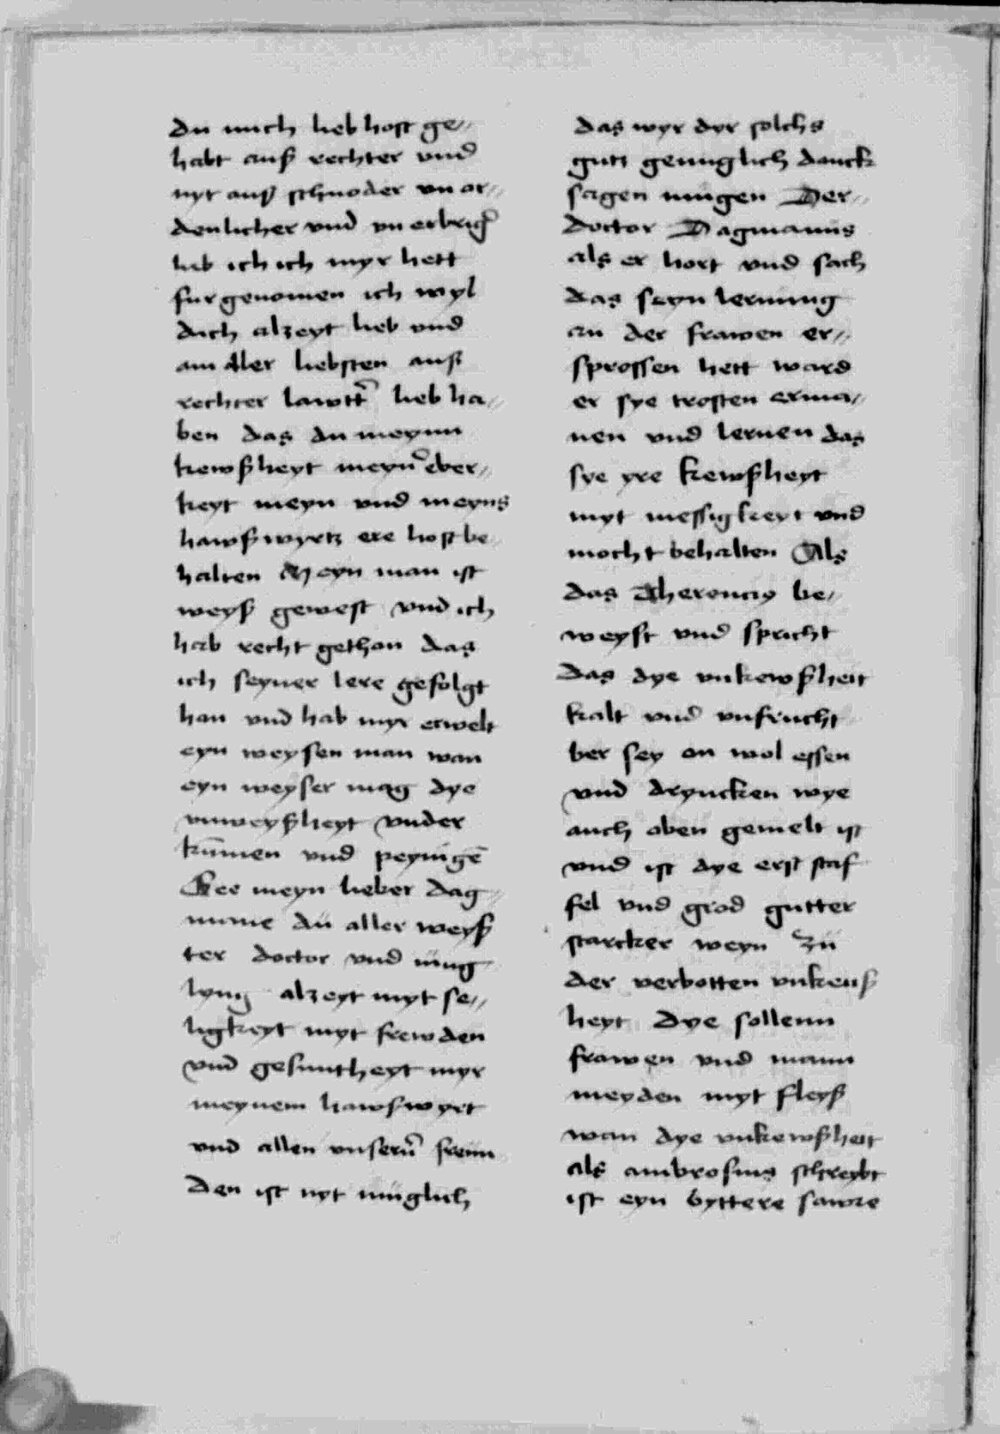 du mich lieb host ge〃
habt auß rechter vnd
nyt auß schnoder vn or〃
denlicher vnd vn erbrig̃
lieb ich ich myr hett
fur genomen ich wyl
dich alzeyt lieb vnd
am aller liebsten auß
rechter lawtt̃ lieb ha〃
ben das du meynn
kewßheyt meyn̄ eber〃
keyt meyn vnd meyns
hawßwyrtz ere host be
halten Meyn man ist
weyß gewest vnd ich
hab recht gethon das
ich seyner lere gefolgt
han vnd hab myr erwelt
eyn weysen man wan
eyn weyser mag dye
vnweyßheyt vnder
kūmen vnd peynigē
See meyn lieber dag〃
mime dü aller weyß
ter doctor vnd müg
lyng alzeyt myt se〃
ligkeyt myt frewden
vnd gesuntheyt myr
meynem hawßwyrt
vnd allen vnsern̄ frewn
den ist nyt müglich
das wyr dyr solchs
gutz genuglich danck
sagen mügen Der〃
doctor Dagmanus
als er hort vnd sach
das seyn lernung
an der frawen er〃
sprossen hett ward
er sye trosten erma〃
nen vnd lernen das
sye yre kewßheyt
myt messigkeyt vnd
mocht behalten Als
das Therencig be〃
weyst vnd spricht
das dye vnkewßheit
kalt vnd vnfrucht
ber sey on wol essen
vnd dryncken wye
auch oben gemelt ist
vnd ist dye erst staf
fel vnd grod gutter
starcker weyn zü
der verbotten vnkeuß
heyt dye sollenn
frawen vnd mann
meyden myt fleyß
wan dye vnkewßheit
als ambrosius schreybt
ist eyn byttere sawre